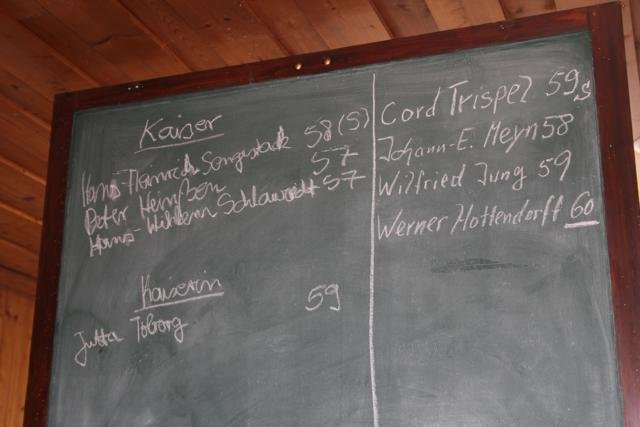 Kaiser
Hans-Heinrich Sengestack 58 (S)
Peter Heinßen 57
Hans-Wilhelm 57
Kaiserin
Jutta Toborg 59
Cord Trispel 59 S
Johann-E. Meyn 58
Wilfried Jung 59
Werner Hottendorff 60